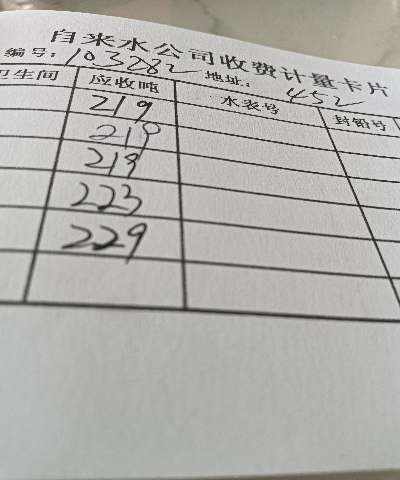 自来水公司收费计量卡片
编号: 103282 地址: 452
卫生间 应收吨 水表号 封铅号
219
219
219
223
229